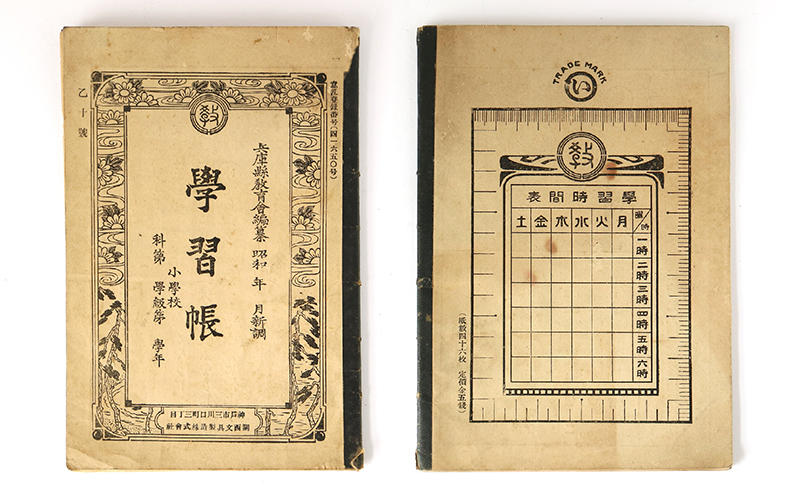 意匠登録番号(四一六五〇号)
乙十號
教
兵庫縣教育會編纂 昭和 年 月新調
學習帳
小學校
科第 學級第 學年
神戸市三川口町三丁目
關西文具製造株式會社
TRADE MARK
い
教
學習時間表
曜/時 月 火 水 木 金 土
一時
二時
三時
四時
五時
六時
(紙數四十六枚 定價金五錢)